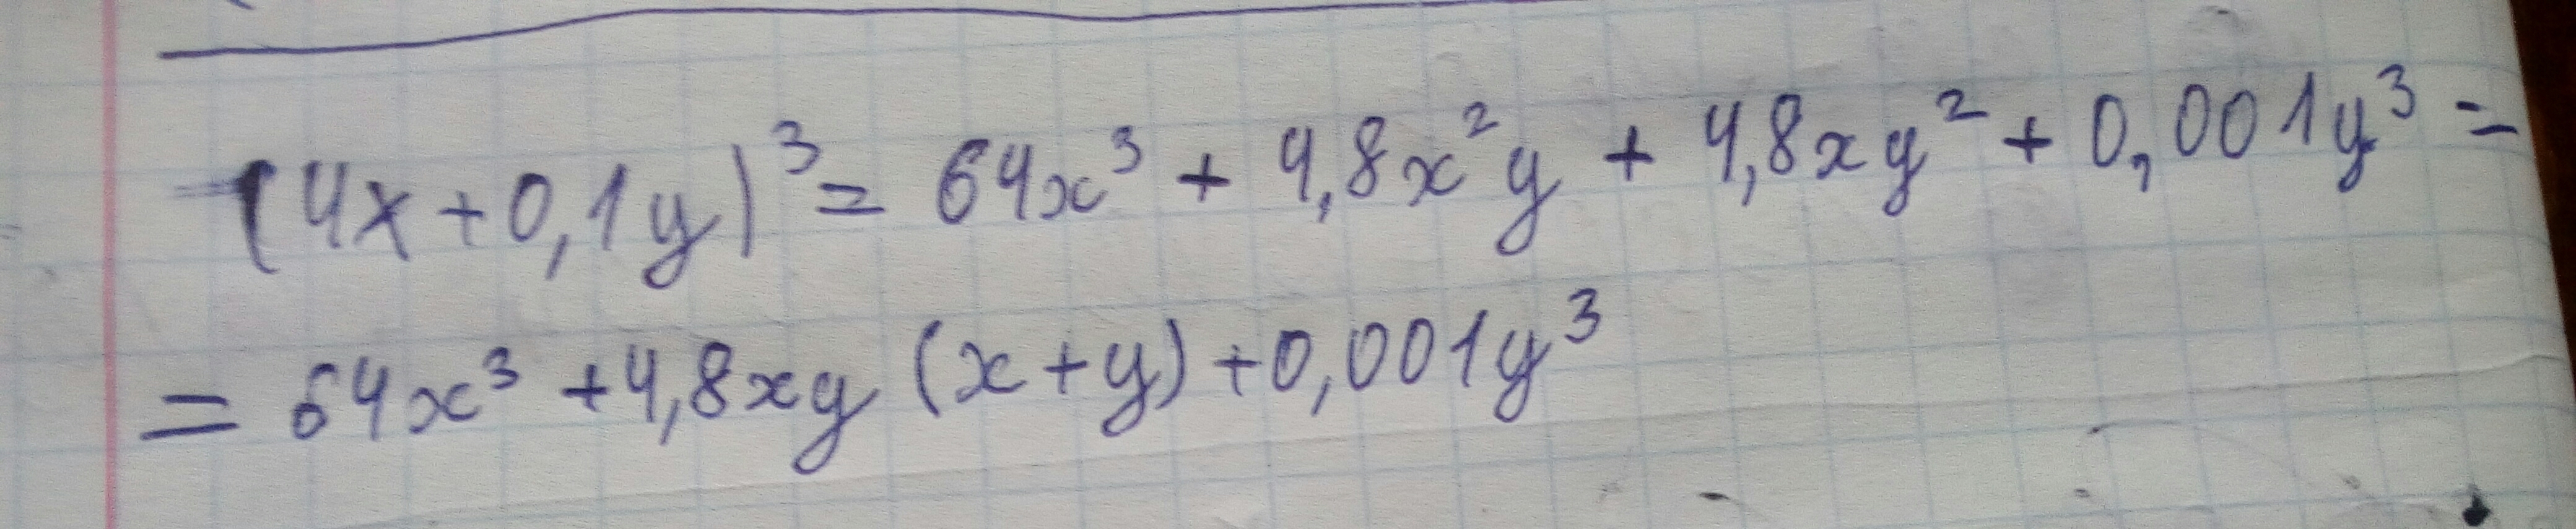 (4x+0,1y)³= 64x³ + 4,8x²y + 4,8xy² + 0,001y³ =
= 64x³ +4,8xy (x+y) +0,001y³